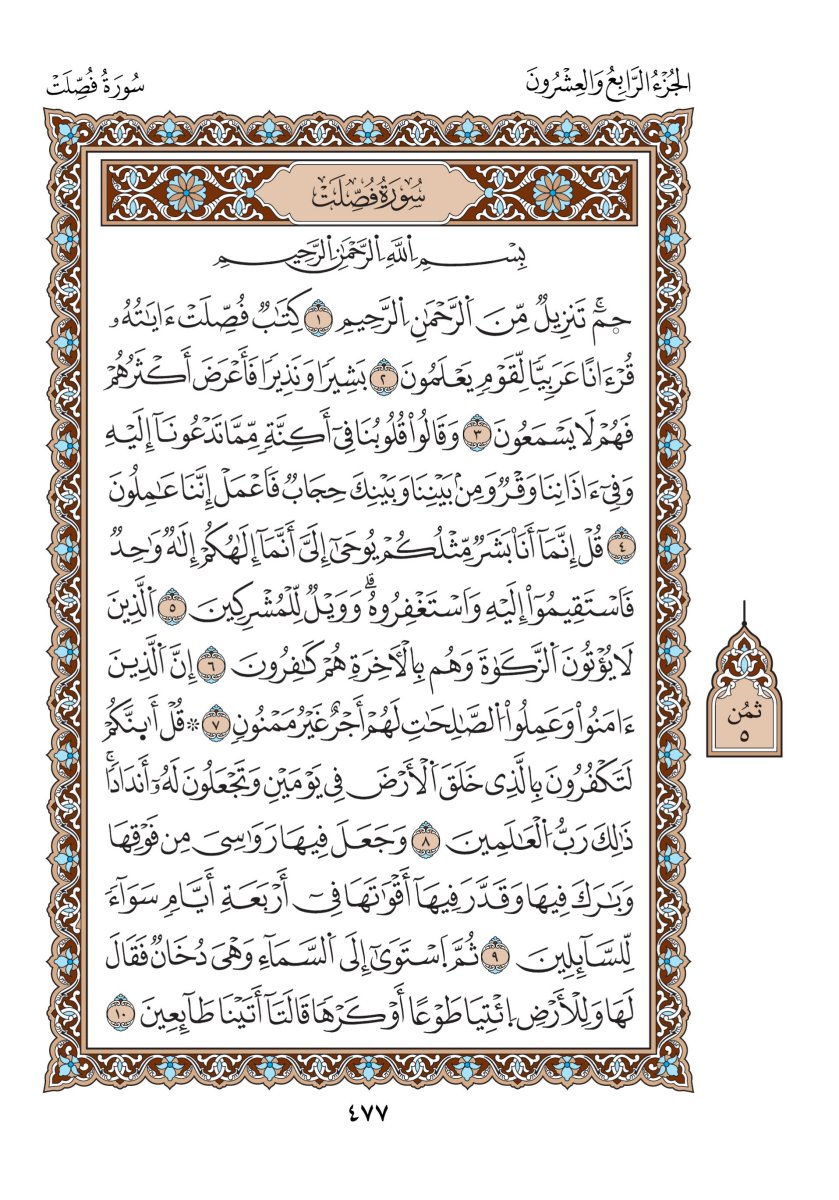 الجُزْءُ الرَّابِعُ وَالعِشْرُونَ
سُورَةُ فُصِّلَتْ
سُورَةُ فُصِّلَتْ
بِسْمِ اِللَّهِ اِلرَّحْمَٰنِ اِلرَّحِيمِ
حمٓۖ تَنزِيلٌ مِّنَ اَلرَّحْمَٰنِ اِلرَّحِيمِ ١ كِتَٰبٌ فُصِّلَتَ ءَايَٰتُهُۥ
قُرْءَانًا عَرَبِيّٗا لِّقَوْمٖ يَعْلَمُونَ ٢ بَشِيرٗا وَنَذِيرٗا فَأَعْرَضَ أَكْثَرُهُمْ
فَهُمْ لَا يَسْمَعُونَ ٣ وَقَالُواْ قُلُوبُنَا فِيٓ أَكِنَّةٖ مِّمَّا تَدْعُونَآ إِلَيْهِ
وَفِيٓ ءَاذَانِنَا وَقْرٞ وَمِنۢ بَيْنِنَا وَبَيْنِكَ حِجَابٞ فَاعْمَلِ اِنَّنَا عَٰمِلُونَ
٤ قُلِ اِنَّمَآ أَنَا۠ بَشَرٞ مِّثْلُكُمْ يُوحَىٰٓ إِلَيَّ أَنَّمَآ إِلَٰهُكُمُۥٓ إِلَٰهٞ وَٰحِدٞ
فَاسْتَقِيمُوٓاْ إِلَيْهِ وَاسْتَغْفِرُوهُۗ وَوَيْلٞ لِّلْمُشْرِكِينَ ٥ اَلَّذِينَ
لَا يُؤْتُونَ اَلزَّكَوٰةَ وَهُم بِالْأٓخِرَةِ هُمْ كَٰفِرُونَ ٦ إِنَّ اَلَّذِينَ
ءَامَنُواْ وَعَمِلُواْ اُلصَّٰلِحَٰتِ لَهُمُۥٓ أَجْرٌ غَيْرُ مَمْنُونٖ ٧ ۞ قُلَ اَئِنَّكُمْ
لَتَكْفُرُونَ بِالَّذِي خَلَقَ اَلْأَرْضَ فِي يَوْمَيْنِ وَتَجْعَلُونَ لَهُۥٓ أَندَادٗاۚ
ذَٰلِكَ رَبُّ اُلْعَٰلَمِينَ ٨ وَجَعَلَ فِيهَا رَوَٰسِيَ مِن فَوْقِهَا
وَبَٰرَكَ فِيهَا وَقَدَّرَ فِيهَآ أَقْوَٰتَهَا فِيٓ أَرْبَعَةِ أَيَّامٖ سَوَآءٗ
لِّلسَّآئِلِينَ ٩ ثُمَّ اَسْتَوَىٰٓ إِلَى اَلسَّمَآءِ وَهْيَ دُخَانٞ فَقَالَ
لَهَا وَلِلْأَرْضِ اِئْتِيَا طَوْعًا أَوْ كَرْهٗا قَالَتَآ أَتَيْنَا طَآئِعِينَ ١٠
ثمُن
٥
٤٧٧